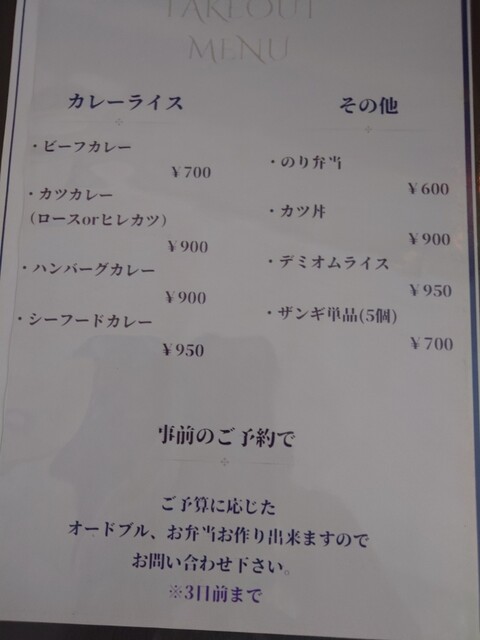 TAKEOUT
MENU
カレーライス
・ビーフカレー
￥700
・カツカレー
(ロースorヒレカツ)
￥900
・ハンバーグカレー
￥900
・シーフードカレー
￥950
その他
・のり弁当
￥600
・カツ丼
￥900
・デミオムライス
￥950
・ザンギ単品(5個)
￥700
事前のご予約で
ご予算に応じた
オードブル、お弁当お作り出来ますので
お問い合わせ下さい。
※3日前まで